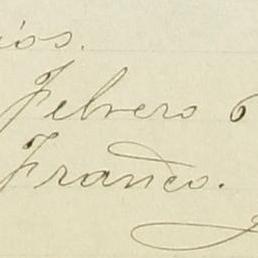 ios.
Febrero 6
Franco.